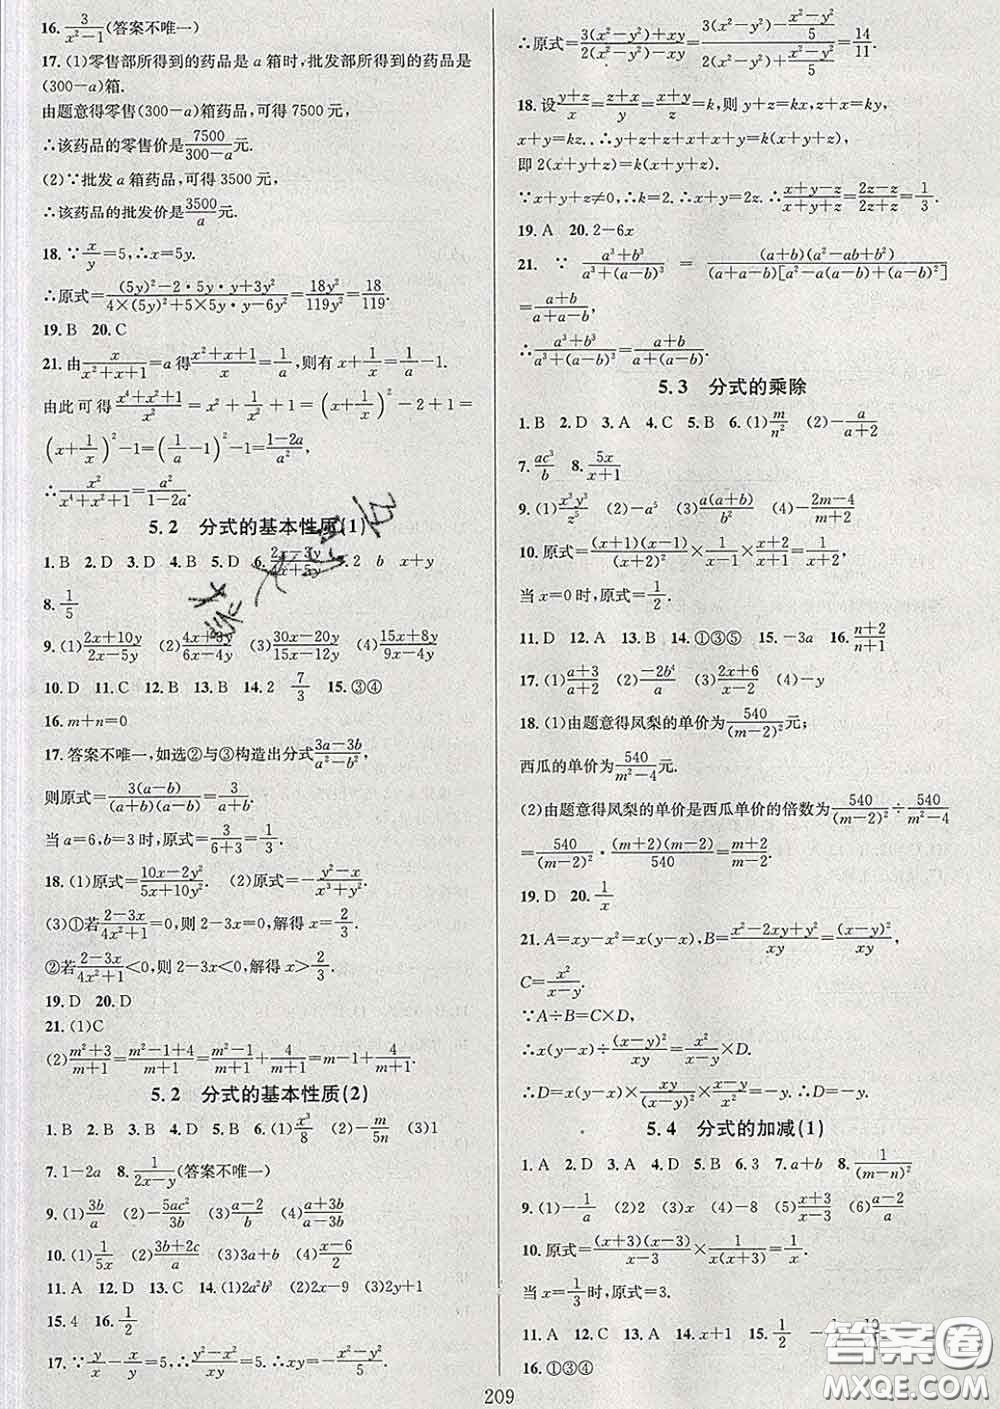 16. 3/(x²−1)(答案不唯一)
17. (1)零售部所得到的药品是a箱时,批发部所得到的药品是
(300−a)箱.
由题意得零售(300−a)箱药品,可得7500元,
∴该药品的零售价是7500/(300−a)元.
(2)∵批发a箱药品,可得3500元,
∴该药品的批发价是3500/a元.
18. ∵x/y=5,∴x=5y.
∴原式=((5y)²−2·5y·y+3y²)/(4×(5y)²+5×5y·y−6y²)=18y²/119y²=18/119.
19. B 20. C
21. 由x/(x²+x+1)=a得(x²+x+1)/x=1/a,则有x+1/x=1/a−1.
由此可得(x⁴+x²+1)/x²=x²+1/x²+1=(x+1/x)²−2+1=
(x+1/x)²−1=(1/a−1)²−1=(1−2a)/a²,
∴x²/(x⁴+x²+1)=a²/(1−2a).
5.2 分式的基本性质(1)
1. B 2. D 3. D 4. B 5. D 6. (2x−3y)/(4x+5y) 7. 2 b x+y
8. 1/5
9. (1)(2x+10y)/(2x−5y) (2)(4x+3y)/(6x−4y) (3)(30x−20y)/(15x−12y) (4)(15x+8y)/(9x−4y)
10. D 11. C 12. B 13. B 14. 2 7/3 15. ③④
16. m+n=0
17. 答案不唯一,如选②与③构造出分式(3a−3b)/(a²−b²),
则原式=3(a−b)/((a+b)(a−b))=3/(a+b).
当a=6,b=3时,原式=3/(6+3)=1/3.
18. (1)原式=(10x−2y)/(5x+10y²). (2)原式=−(y²−x)/(x³+y²).
(3)①若(2−3x)/(4x²+1)=0,则2−3x=0,解得x=2/3.
②若(2−3x)/(4x²+1)<0,则2−3x<0,解得x>2/3.
19. D 20. D
21. (1)C
(2)(m²+3)/(m+1)=(m²−1+4)/(m+1)=(m²−1)/(m+1)+4/(m+1)=m−1+4/(m+1).
5.2 分式的基本性质(2)
1. B 2. B 3. B 4. D 5. B 6. (1)x³/8 (2)−m/5n (3)1
7. 1−2a 8. 1/(2x−y)(答案不唯一)
9. (1)3b/a (2)−5ac²/3b (3)(a−2)/b (4)(a+3b)/(a−3b)
10. (1)1/5x (2)(3b+2c)/a (3)3a+b (4)(x−6)/2
11. A 12. D 13. C 14. (1)2a²b³ (2)2x−9 (3)2y+1
15. 4 16. 1/2
17. ∵y/x−x/y=5,∴(y²−x²)/xy=5. ∴xy=−(x²−y²)/5.
∴原式=(3(x²−y²)+xy)/(2(x²−y²)−xy)=(3(x²−y²)−(x²−y²)/5)/(2(x²−y²)+(x²−y²)/5)=14/11.
18. 设(y+z)/x=(z+x)/y=(x+y)/z=k,则y+z=kx,z+x=ky,
x+y=kz. ∴x+y+y+z+z+x=k(x+y+z),
即2(x+y+z)=k(x+y+z).
∵x+y+z≠0,∴k=2. ∴x+y=2z. ∴(x+y−z)/(x+y+z)=(2z−z)/(2z+z)=1/3.
19. A 20. 2−6x
21. ∵(a³+b³)/(a³+(a−b)³)=((a+b)(a²−ab+b²))/((a+b)[a²−a(a−b)+(a−b)²])
=(a+b)/(a+a−b),
∴(a³+b³)/(a³+(a−b)³)=(a+b)/(a+(a−b)).
5.3 分式的乘除
1. B 2. D 3. A 4. C 5. B 6. (1)m/n² (2)−a/(a+2)
7. ac³/b 8. 5x/(x+1)
9. (1)x³y³/z⁵ (2)−a⁵ (3)a(a+b)/b² (4)−(2m−4)/(m+2)
10. 原式=((x+1)(x−1))/(x+2)²×1/(x−1)×(x+2)/(x+1)=1/(x+2).
当x=0时,原式=1/2.
11. D 12. A 13. D 14. ①③⑤ 15. −3a 16. (n+2)/(n+1)
17. (1)(a+3)/(a+2) (2)−2b⁴/a (3)(2x+6)/(x−2) (4)−y
18. (1)由题意得凤梨的单价为540/(m−2)²元;
西瓜的单价为540/(m²−4)元.
(2)由题意得凤梨的单价是西瓜单价的倍数为540/(m−2)²÷540/(m²−4)
=540/(m−2)²·((m+2)(m−2))/540=(m+2)/(m−2).
19. D 20. 1/x
21. A=xy−x²=x(y−x),B=(x²−2xy+y²)/xy=(x−y)²/xy,
C=x²/(x−y).
∵A÷B=C×D,
∴x(y−x)÷(x−y)²/xy=x²/(x−y)×D.
∴D=−x(x−y)×xy/(x−y)²×(x−y)/x²=−y. ∴D=−y.
5.4 分式的加减(1)
1. A 2. D 3. D 4. D 5. B 6. 3 7. a+b 8. 1/(m−n)²
9. (1)−1/a (2)2 (3)x (4)−8 (5)(x+3)/(x−3) (6)a/(a−2)
10. 原式=((x+3)(x−3))/(x−3)×1/(x(x+3))=1/x.
当x=1/3时,原式=3.
11. A 12. D 13. A 14. x+1 15. 1/2
16. ①③④
209
答案圈
MXQE.COM